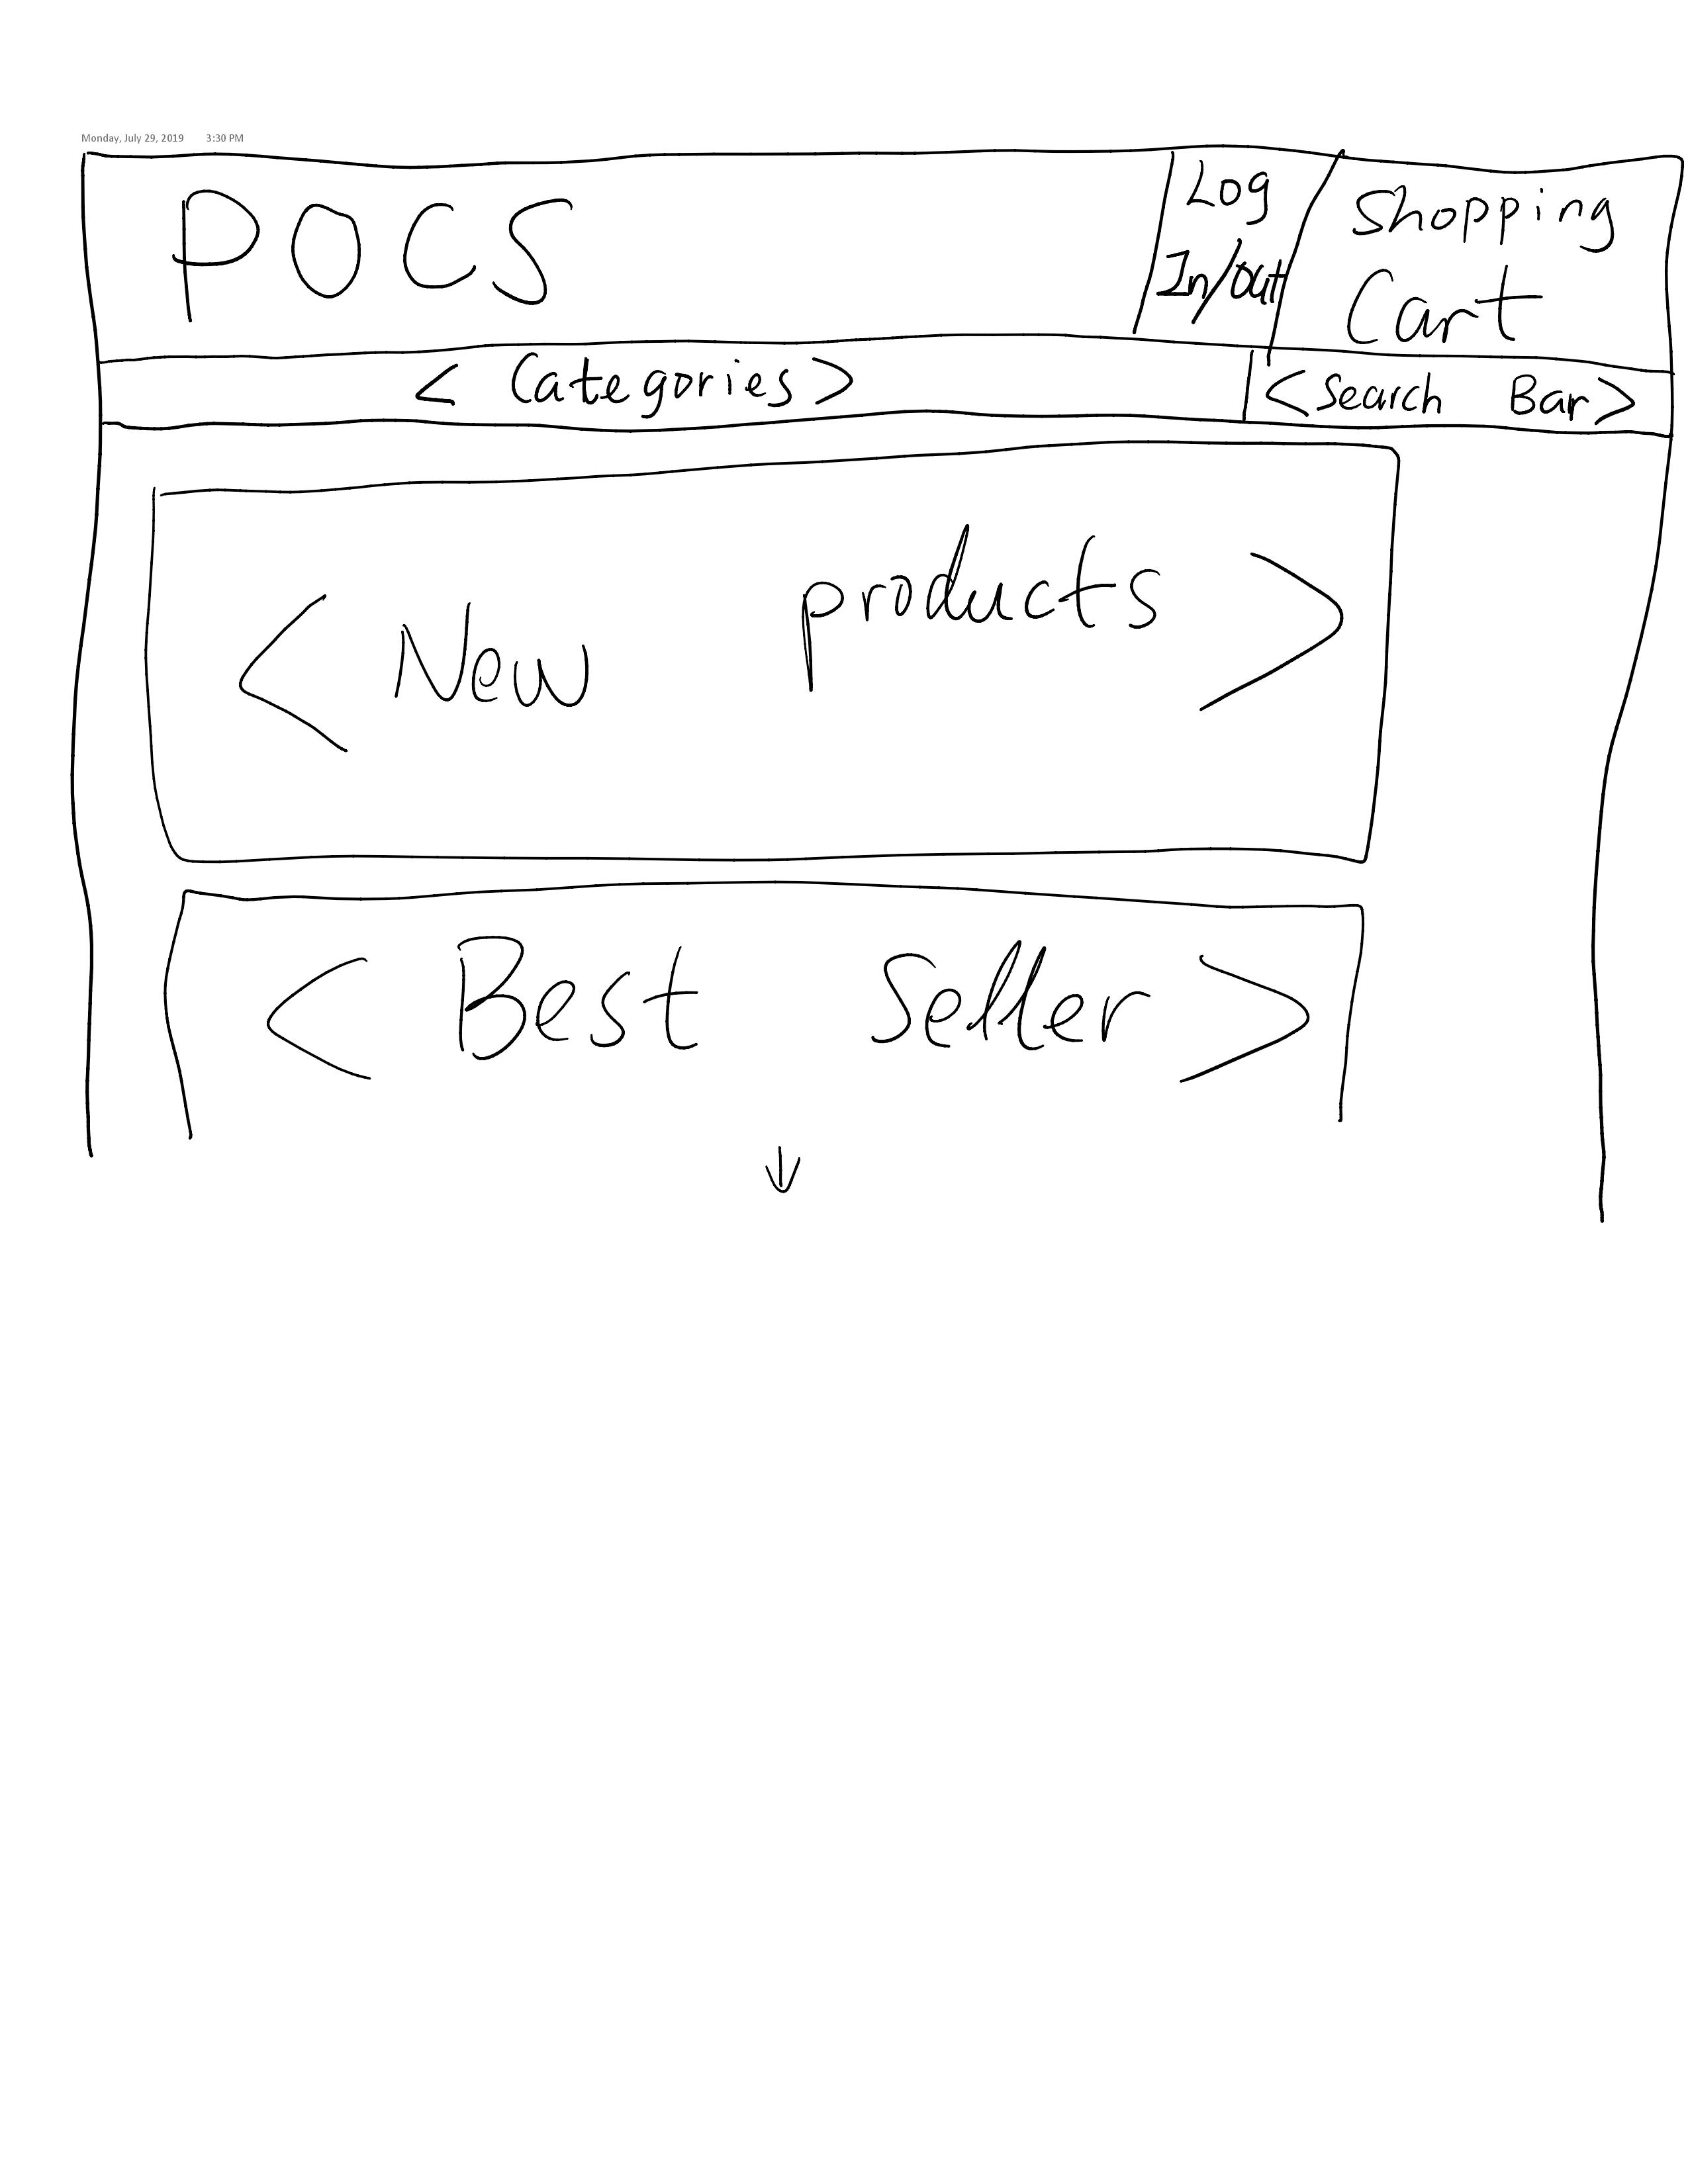 Monday, July 29, 2019 3:30 PM
POCS
Log
In/out
Shopping
Cart
< Categories >
< Search Bar >
< New products >
< Best Seller >